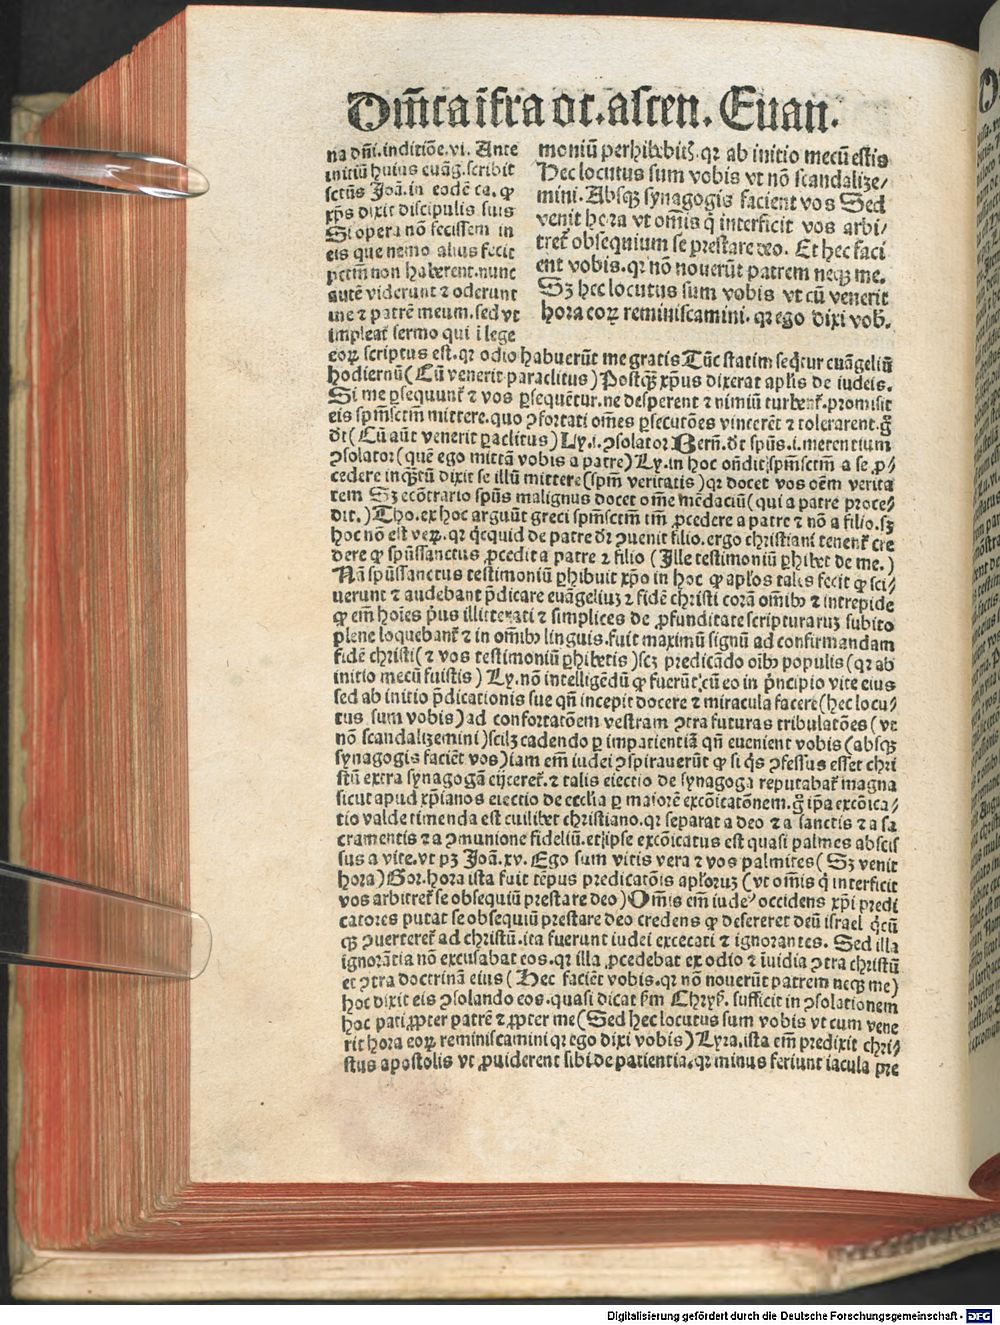 Dm̄ca ı̄fra oc. ascen. Euan.
na dn̄i. inditiōe. vi. Ante
initiū huius euāg. scribit
sctūs Joā. in eodē ca. ꝙ
xp̄s dixit discipulis suis
Si opera nō fecissem in
eis que nemo alius fecit
pctm̄ non haberent. nunc
autē viderunt ⁊ oderunt
me ⁊ patrē meum. sed vt
impleat᷑ sermo qui i lege
moniū perhibebit᷑. qꝛ ab initio mecū estis
Hec locutus sum vobis vt nō scandalize/
mini. Absqꝫ synagogis facient vos Sed
venit hora vt om̄is q̇ interficit vos arbi/
tret᷑ obsequium se prestare deo. Et hec faci
ent vobis. qꝛ nō nouerūt patrem neqꝫ me.
Sꝫ hec locutus sum vobis vt cū venerit
hora eoꝝ reminiscamini. qꝛ ego dixi vob̄.
eoꝝ scriptus est. qꝛ odio habuerūt me gratis Tūc statim seq̇tur euāgeliū
hodiernū (Cū venerit paraclitus) Postqꝫ̄ xp̄us dixerat apl̄is de iudeis.
Si me ꝑsequunt᷑ ⁊ vos ꝑsequētur. ne desperent ⁊ nimiū turbent᷑. promisit
eis spm̄sctm̄ mittere. quo ꝯfortati om̄es ꝑsecutōes vincerēt ⁊ tolerarent. g̊
dt̄ (Cū aūt venerit ꝑaclitus) Ly. i. ꝯsolator Bern̄. dt̄ spūs. i. merentium
ꝯsolator (quē ego mittā vobis a patre) Ly. in hoc on̄dit spm̄sctm̄ a se ꝓ/
cedere inqꝫ̄tū dixit se illū mittere (spm̄ veritatis) qꝛ docet vos oēm verita
tem Sꝫ ecōtrario spūs malignus docet om̄e mēdaciū (qui a patre proce/
dit.) Tho. ex hoc arguūt greci spm̄sctm̄ tm̄ ꝓcedere a patre ⁊ nō a filio. sꝫ
hoc nō est veꝝ. qꝛ q̇cquid de patre dꝛ̄ ꝯuenit filio. ergo christiani tenent᷑ cre
dere ꝙ spūssanctus ꝓcedit a patre ⁊ filio (Ille testimoniū ꝑhibet de me.)
Nā spūssanctus testimoniū ꝑhibuit xp̄o in hoc ꝙ apl̄os tales fecit ꝙ sci/
uerunt ⁊ audebant p̄dicare euāgeliuꝫ ⁊ fidē christi corā om̄ibꝰ ⁊ intrepide
ꝙ em̄ hoīes p̓us illitterati ⁊ simplices de ꝓfunditate scripturaruꝫ subito
plene loquebant᷑ ⁊ in om̄ibꝰ linguis. fuit maximū signū ad confirmandam
fidē christi (⁊ vos testimoniū ꝑhibetis) scꝫ predicādo oībꝰ populis (qꝛ ab
initio mecū fuistis) Ly. nō intelligēdū ꝙ fuerūt cū eo in p̓ncipio vite eius
sed ab initio p̄dicationis sue qn̄ incepit docere ⁊ miracula facere (hec locu/
tus sum vobis) ad confortatōem vestram ꝯtra futuras tribulatōes (vt
nō scandalizemini) scilꝫ cadendo ꝑ impatientiā qn̄ euenient vobis (absqꝫ
synagogis faciēt vos) iam em̄ iudei ꝯspirauerūt ꝙ si q̇s ꝯfessus esset chri
stū extra synagogā eijceret᷑. ⁊ talis eiectio de synagoga reputabat᷑ magna
sicut apud xp̄ianos eiectio de eccl̄ia ꝑ maiorē excōicatōnem. g̊ ip̄a excōica/
tio valde timenda est cuilibet christiano. qꝛ separat a deo ⁊ a sanctis ⁊ a sa
cramentis ⁊ a ꝯmunione fideliū. et ipse excōicatus est quasi palmes abscis
sus a vite. vt pꝫ Joā. xv. Ego sum vitis vera ⁊ vos palmites (Sꝫ venit
hora) Gor. hora ista fuit tēpus predicatōis apl̄oruꝫ (vt om̄is q̇ interficit
vos arbitret᷑ se obsequiū prestare deo) Om̄is em̄ iudeꝰ occidens xp̄i predi
catores putat se obsequiū prestare deo credens ꝙ desereret deū israel q̇cū
qꝫ ꝯuerteret᷑ ad christū. ita fuerunt iudei excecati ⁊ ignorantes. Sed illa
ignorātia nō excusabat eos. qꝛ illa ꝓcedebat ex odio ⁊ īuidia ꝯtra christū
et ꝯtra doctrinā eius (Hec faciēt vobis. qꝛ nō nouerūt patrem neqꝫ me)
hoc dixit eis ꝯsolando eos. quasi dicat ẜm Chryẜ. sufficit in ꝯsolationem
hoc pati ꝓpter patrē ⁊ ꝓpter me (Sed hec locutus sum vobis vt cum vene
rit hora eoꝝ reminiscamini qꝛ ego dixi vobis) Lyra. ista em̄ predixit chri/
stus apostolis vt ꝓuiderent sibi de patientia. qꝛ minus feriunt iacula pre
Digitalisierung gefördert durch die Deutsche Forschungsgemeinschaft - DFG